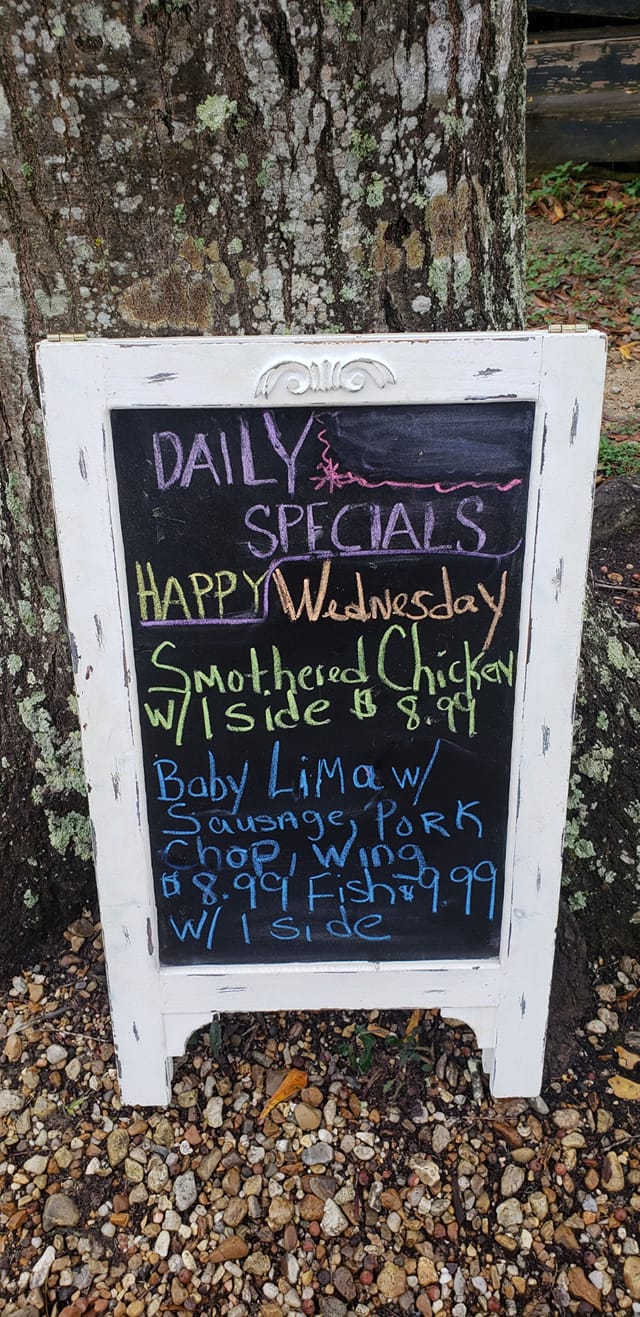 DAILY
SPECIALS
HAPPY Wednesday
Smothered Chicken
w/ 1 side $ 8.99
Baby Lima w/
Sausage, Pork
Chop, Wing
$ 8.99 Fish $9.99
w/ 1 side